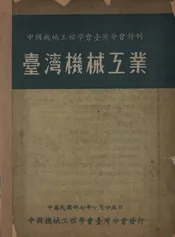 中國機械工程學會臺灣分會特刊
臺灣機械工業
中華民國卅七年七月廿五日
中國機械工程學會臺灣分會發行